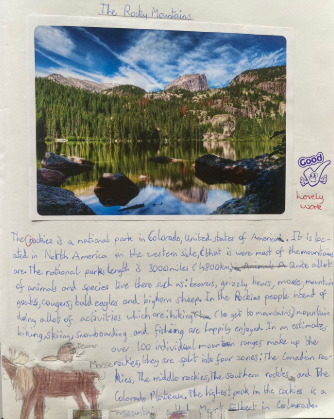 The Rocky Mountains
Good
Lovely
work
The Rockies is a national park in Colorado, United states of America. It is loc-
ated in North America on the western side, (that is were most of the mountains
are. The national parks length is 3000miles (4800km) Quite allot
of animals and species live there such as: beavers, grizzly bears, moose, mountain
goats, cougars, bald eagles and bighorn sheep. In the Rockies people intend of
doing allot of activities which are: hiking (to get to mountains) mountain
biking, skiing, snowboarding and fishing are happily enjoyed. In an estimate,
over 100 individual mountain ranges make up the
Moose
rockies, they are split into four zones: The Canadian Roc-
kies, The middle rockies, The southern rockies and The
Colorado Plateau. The highest peak in the rockies is a
mountain